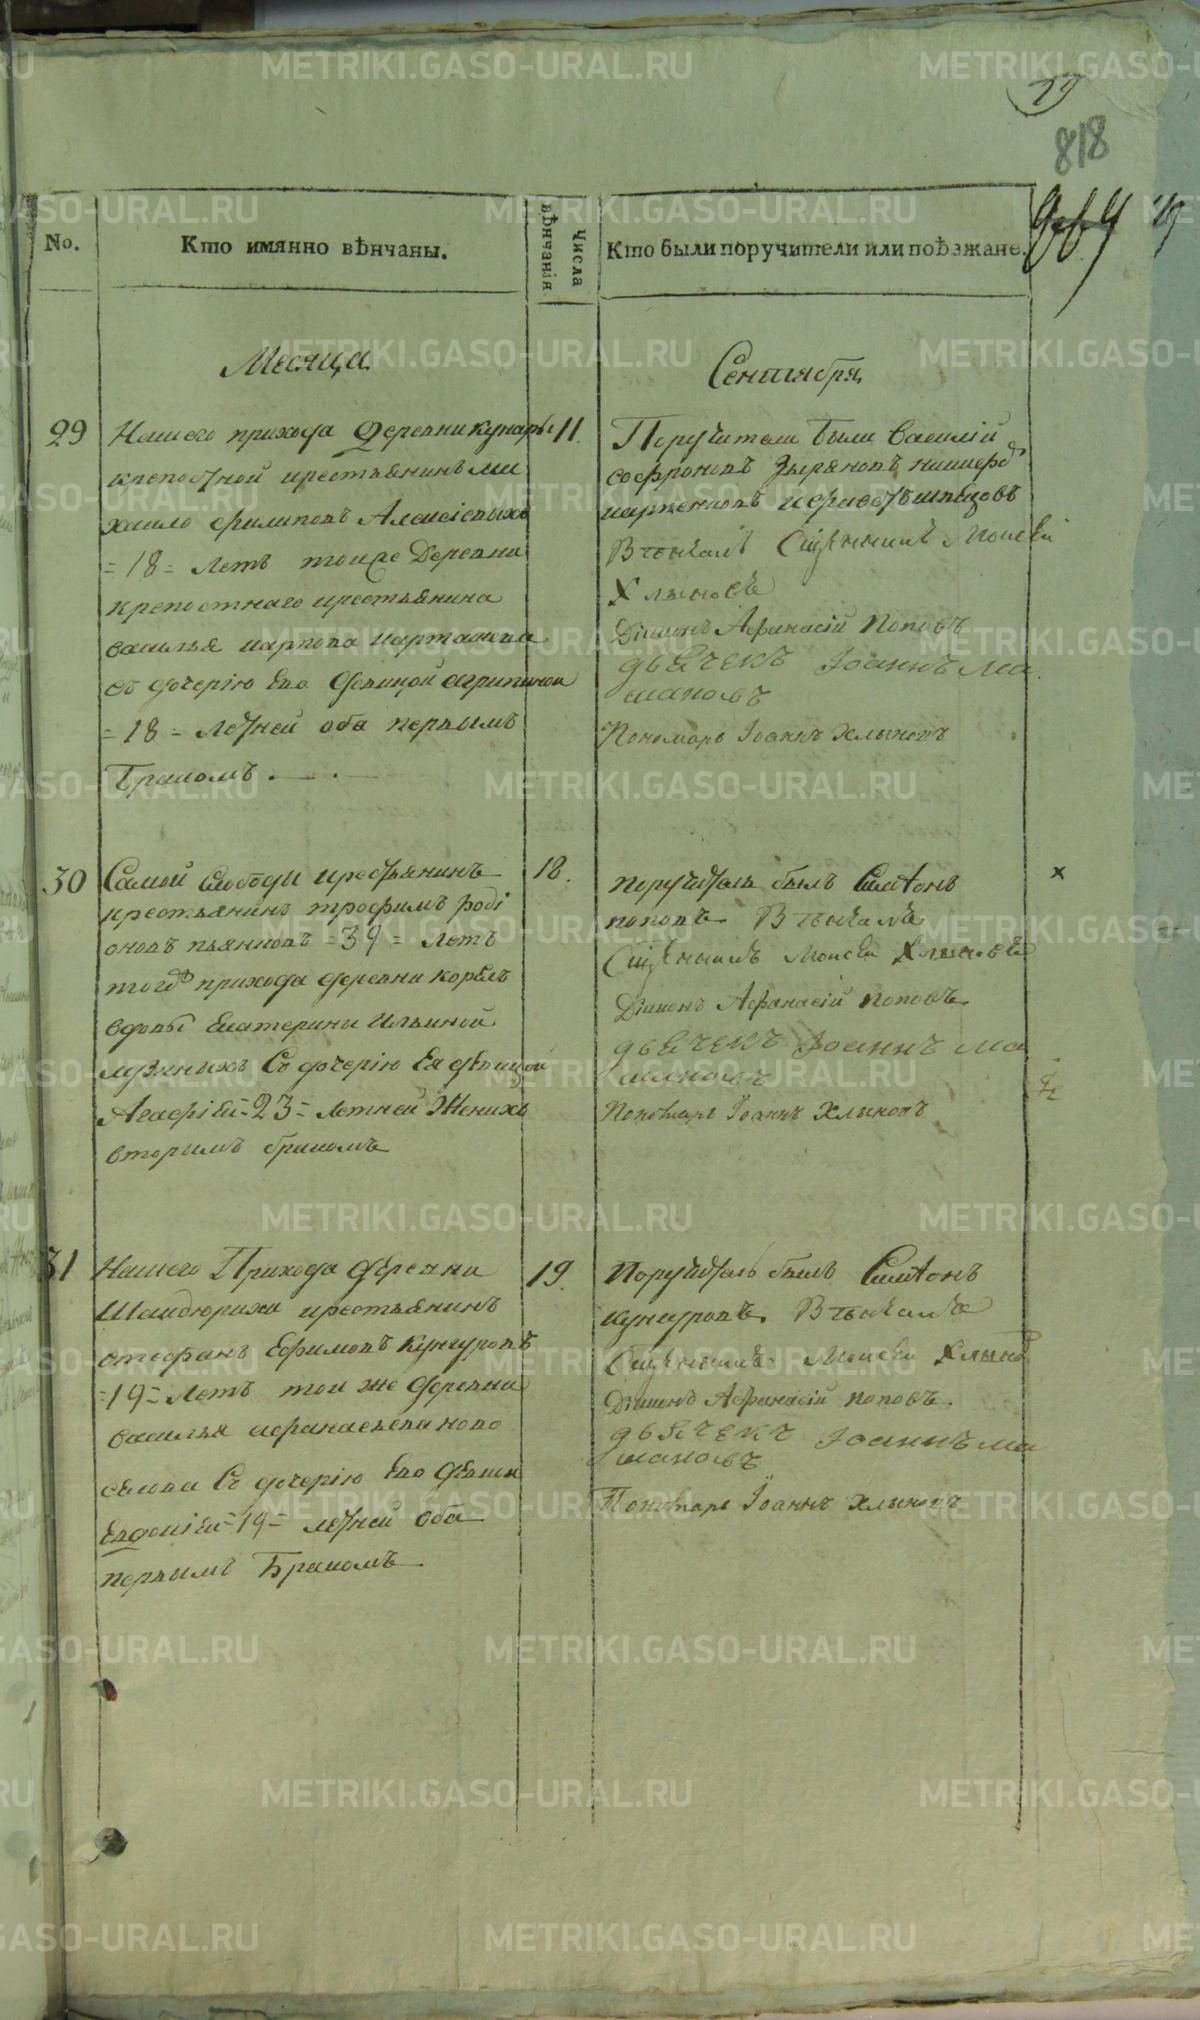 19
818
No.
Кто имянно вѣнчаны.
Числа вѣнчанія
Кто были поручители или поѣзжане.
Месяца
Сентября
29
Нашего прихода Деревни Кунары
крепостной крестьянинъ ми
хаило филиповъ Алексіевыхъ
=18= летъ тоиже Деревни
крепостнаго крестьянина
василья карпова карташева
съ дочерію Ево Девицой агрипиной
=18= летней оба первымъ
Бракомъ.
11.
Поручители были Василій
софроновъ Зыряновъ
Венчалъ Священникъ Моисей
Хлыновъ
Діаконъ Афанасій Поповъ
дьЯчекъ Іоаннъ Ма
маковъ
Пономарь Іоаннъ Хлыновъ
30
Самой Слободы крестьянинъ
крестьянинъ трофимъ роді
оновъ пьянковъ =39= летъ
того прихода деревни корелъ
вдовы Екатерины Ильиной
Со дочерію Ея девицой
Агафіей =23= летней Женихъ
вторымъ бракомъ
18.
поручитель былъ Симіонъ
поповъ. Венчалъ
Священникъ Моисей Хлыновъ
Діаконъ Афанасій поповъ.
дьЯчекъ Іоаннъ Ма
маковъ
Пономарь Іоаннъ Хлыновъ
х
31
Нашего Прихода деревни
Шайдюрихи крестьянинъ
стефанъ Ефимовъ Кунгуровъ
=19= летъ тои же деревни
василья афанасьева ново
селова Съ дочерію Ево девицы
Евдокіей =19= летней Оба
первымъ Бракомъ
19.
Поручитель былъ Симіонъ
кунгуровъ. Венчалъ
Священникъ Моисей Хлыновъ
Діаконъ Афанасій поповъ.
дьЯчекъ Іоаннъ Ма
маковъ
Пономарь Іоаннъ Хлыновъ
METRIKI.GASO-URAL.RU